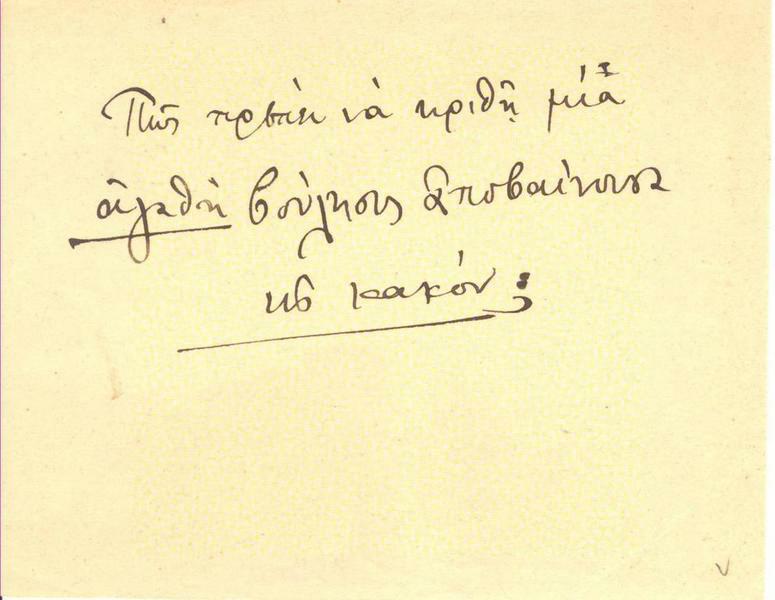 Πῶς πρέπει νὰ κριθῇ μία
ἀγαθὴ βούλησις ἀποβαίνουσα
εἰς κακόν;